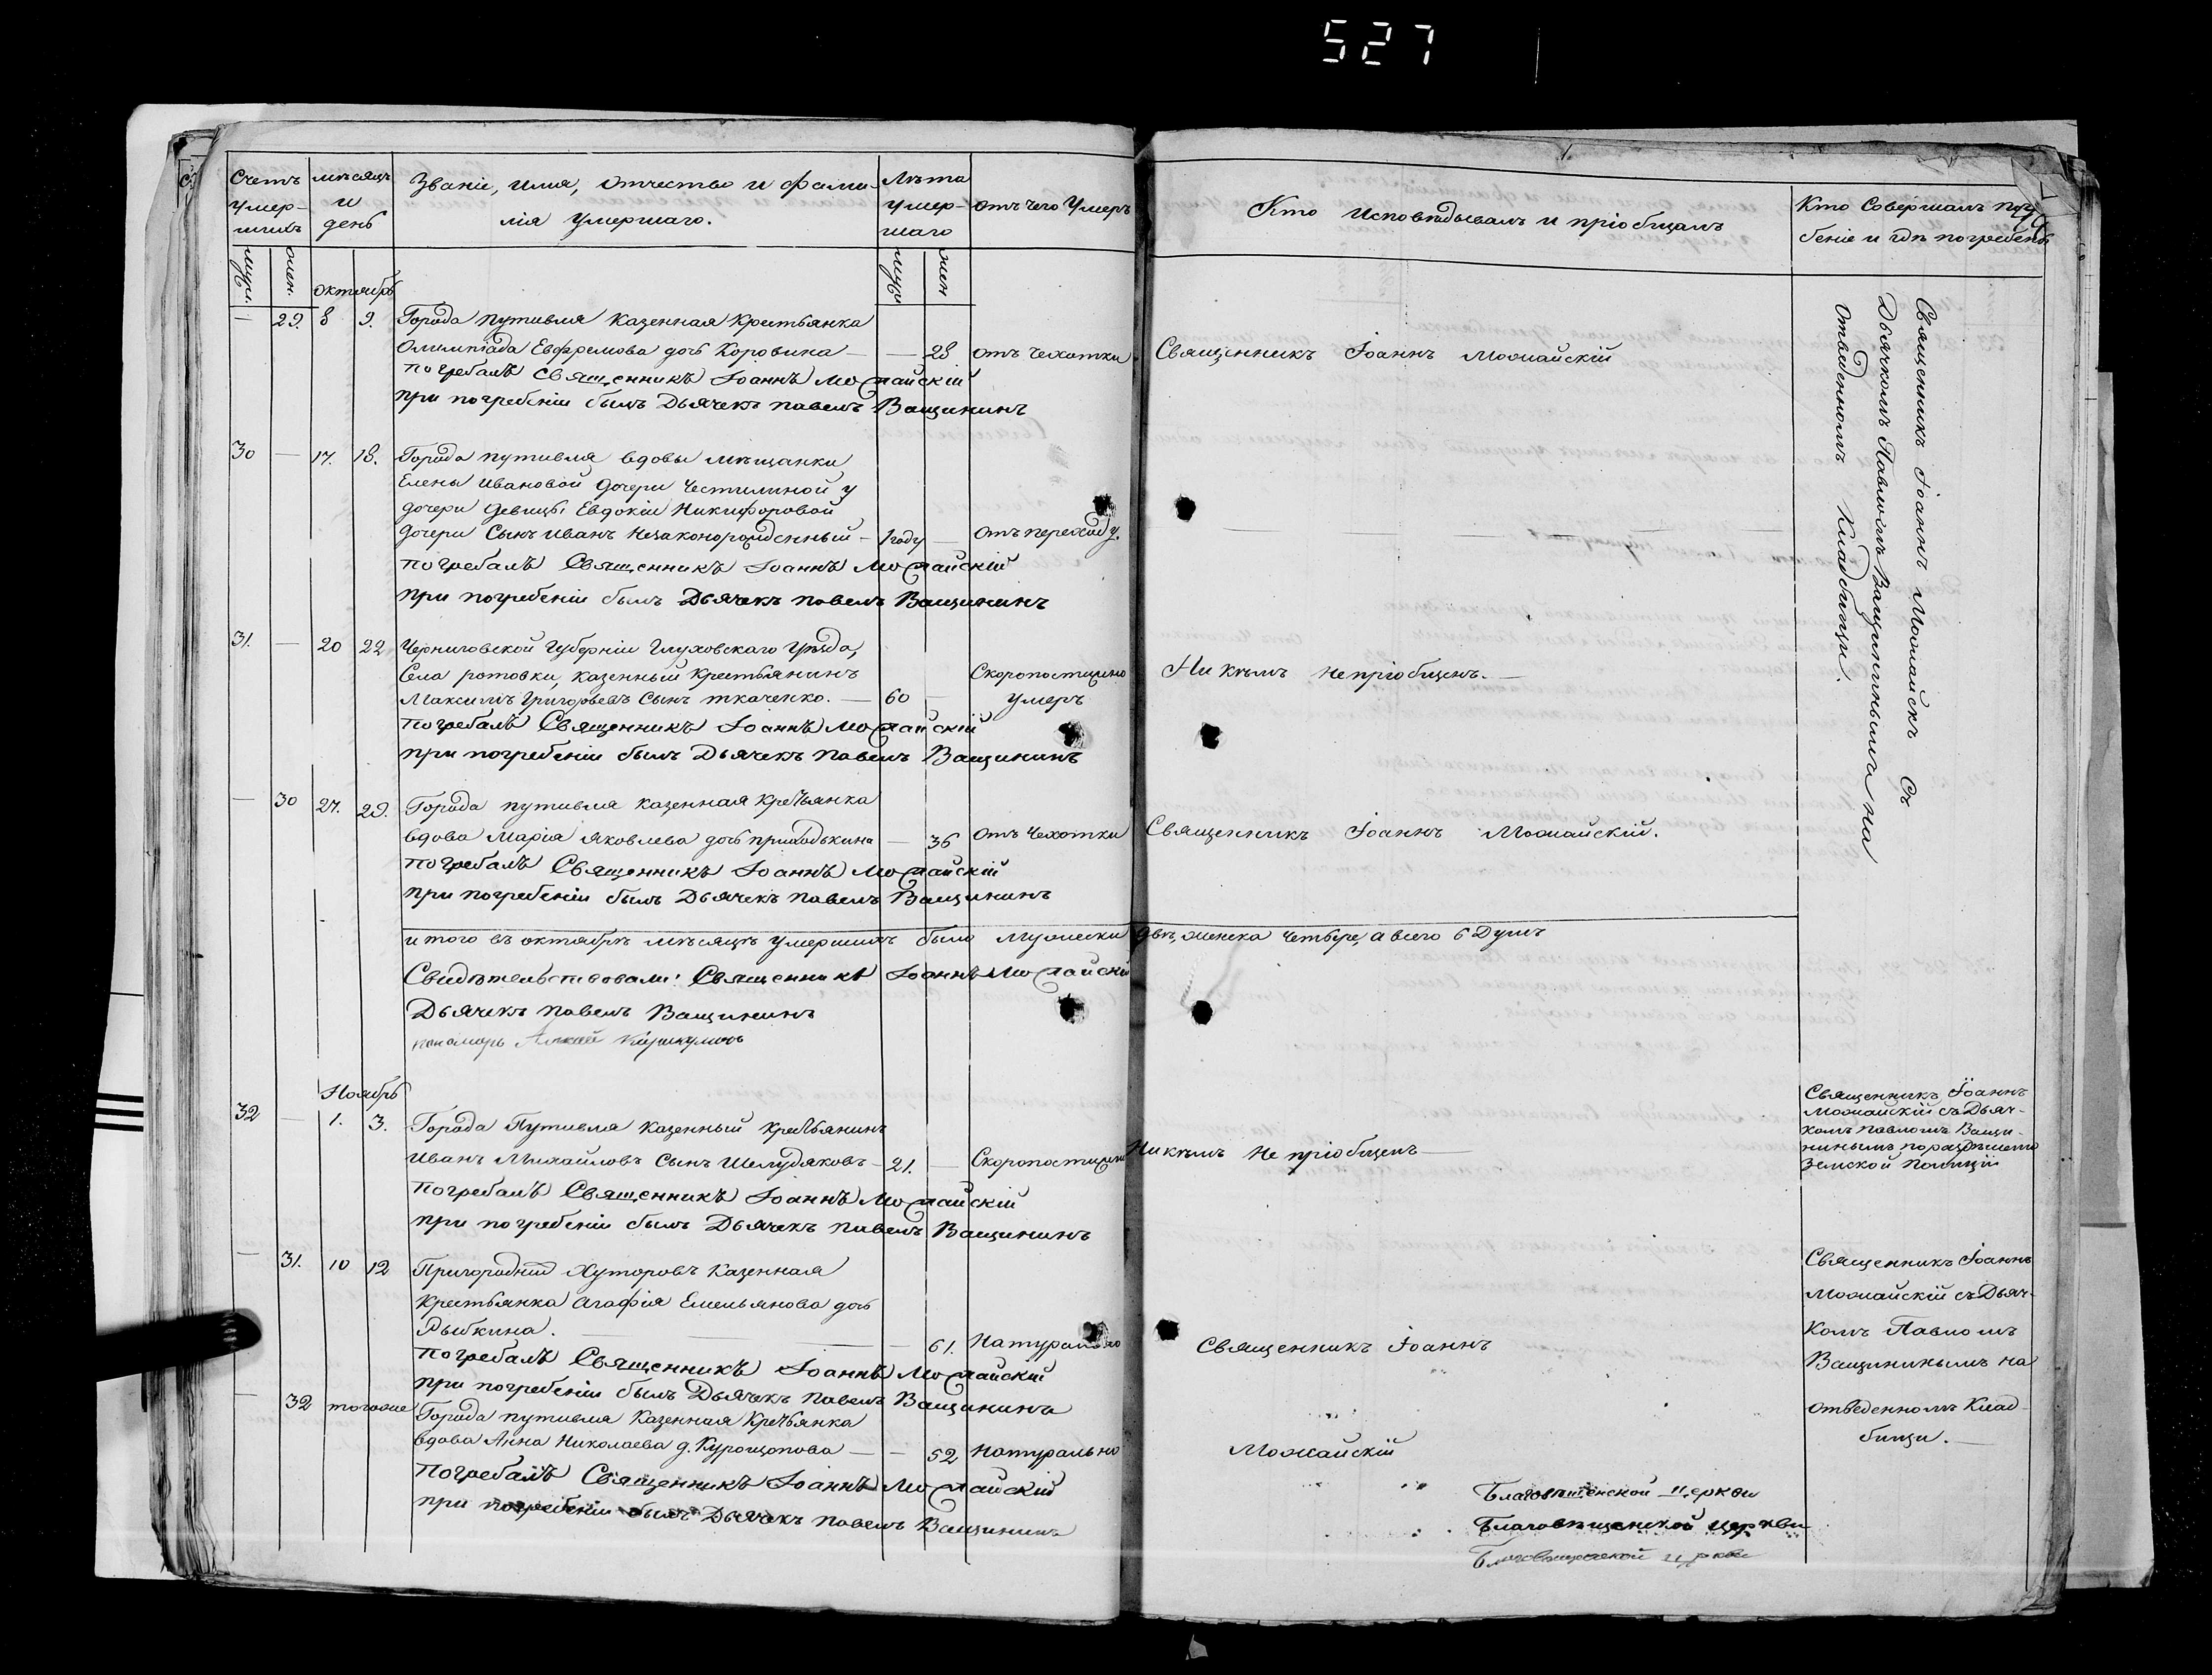 527
Счетъ умер-
шихъ
мѣсяцъ
и
день
Званіе, имя, отчество и фами-
лія умершаго.
Лѣта
умер-
шаго
отъ чего умеръ
Кто исповѣдывалъ и пріобщалъ
Кто совершалъ погре
беніе и гдѣ погребенъ
муж.
жен.
муж
жен
октябрь
— 29. 8 9. Города путивля казенная крестьянка
Олимпіада Евфремова дочь Коровина — — 28 отъ чахотки. Священникъ Іоаннъ Можайскій
погребалъ Священникъ Іоаннъ Можайскій
при погребеніи былъ Дьячекъ павелъ Ващининъ
30 — 17. 18. Города путивля вдовы мѣщанки
Елены Ивановой дочери Честилиной у
дочери девицы Евдокіи Никифоровой
дочери Сынъ иванъ незаконорожденный — 1 году — отъ переходу.
погребалъ Священникъ Іоаннъ Можайскій
при погребеніи былъ Дьячекъ павелъ Ващининъ
31. — 20 22 Черниговской губерніи Глуховскаго уѣзда,
Села ротовки, казенный крестьянинъ Скоропостижно Никѣмъ непріобщенъ. —
Максимъ Григорьевъ Сынъ ткаченко. — 60 — умеръ
погребалъ Священникъ Іоаннъ Можайскій
при погребеніи былъ Дьячекъ павелъ Ващининъ
— 30 27. 29. Города путивля казенная кретьянка
вдова Марія Яковлева дочь приходькина — — 36 отъ чахотки Священникъ Іоаннъ Можайскій.
погребалъ Священникъ Іоаннъ Можайскій
при погребеніи былъ Дьячекъ павелъ Ващининъ
Священникъ Іоаннъ Можайскъ Съ
Дьячкомъ Павломъ Ващининымъ на
отведенномъ Кладбищи.
итого въ октябрѣ мѣсяцѣ умершихъ было мужеска двѣ, женска четыре, а всего 6 Душъ
Свидѣтельствовали: Священникъ Іоаннъ Можайскій
Дьячекъ павелъ Ващининъ
пономарь
Ноябрь
32 — 1. 3. Города Путивля казенный кретьянинъ
Иванъ Михайловъ Сынъ Шелудяковъ — 21. — Скоропостижно Никѣмъ не пріобщенъ —
погребалъ Священникъ Іоаннъ Можайскій
при погребеніи былъ Дьячекъ павелъ Ващининъ
Священникъ Іоаннъ
Можайскій съ Дьяч-
комъ павломъ Ващи-
нинымъ по
Земской полиціи
— 31. 10 12 Пригородний Хуторовъ казенная
Крестьянка Агафія Емельянова дочь
Рыбкина. — — — 61. Натурально Священникъ Іоаннъ
погребалъ Священникъ Іоаннъ Можайскій
при погребеніи былъ Дьячекъ павелъ Ващининъ
— 32 тогоже Города путивля казенная кретьянка
вдова Анна Николаева д. Курощопова — — 52 Натурально Можайскій
погребалъ Священникъ Іоаннъ Можайскій
при погребеніи былъ Дьячекъ павелъ Ващининъ
Священникъ Іоаннъ
Можайскій съ Дьяч-
комъ Павломъ
Ващининымъ на
отведенномъ Клад-
бищи. —
Благовѣщенской Церкви
Благовѣщенской церкви
Благовѣщенской церкви